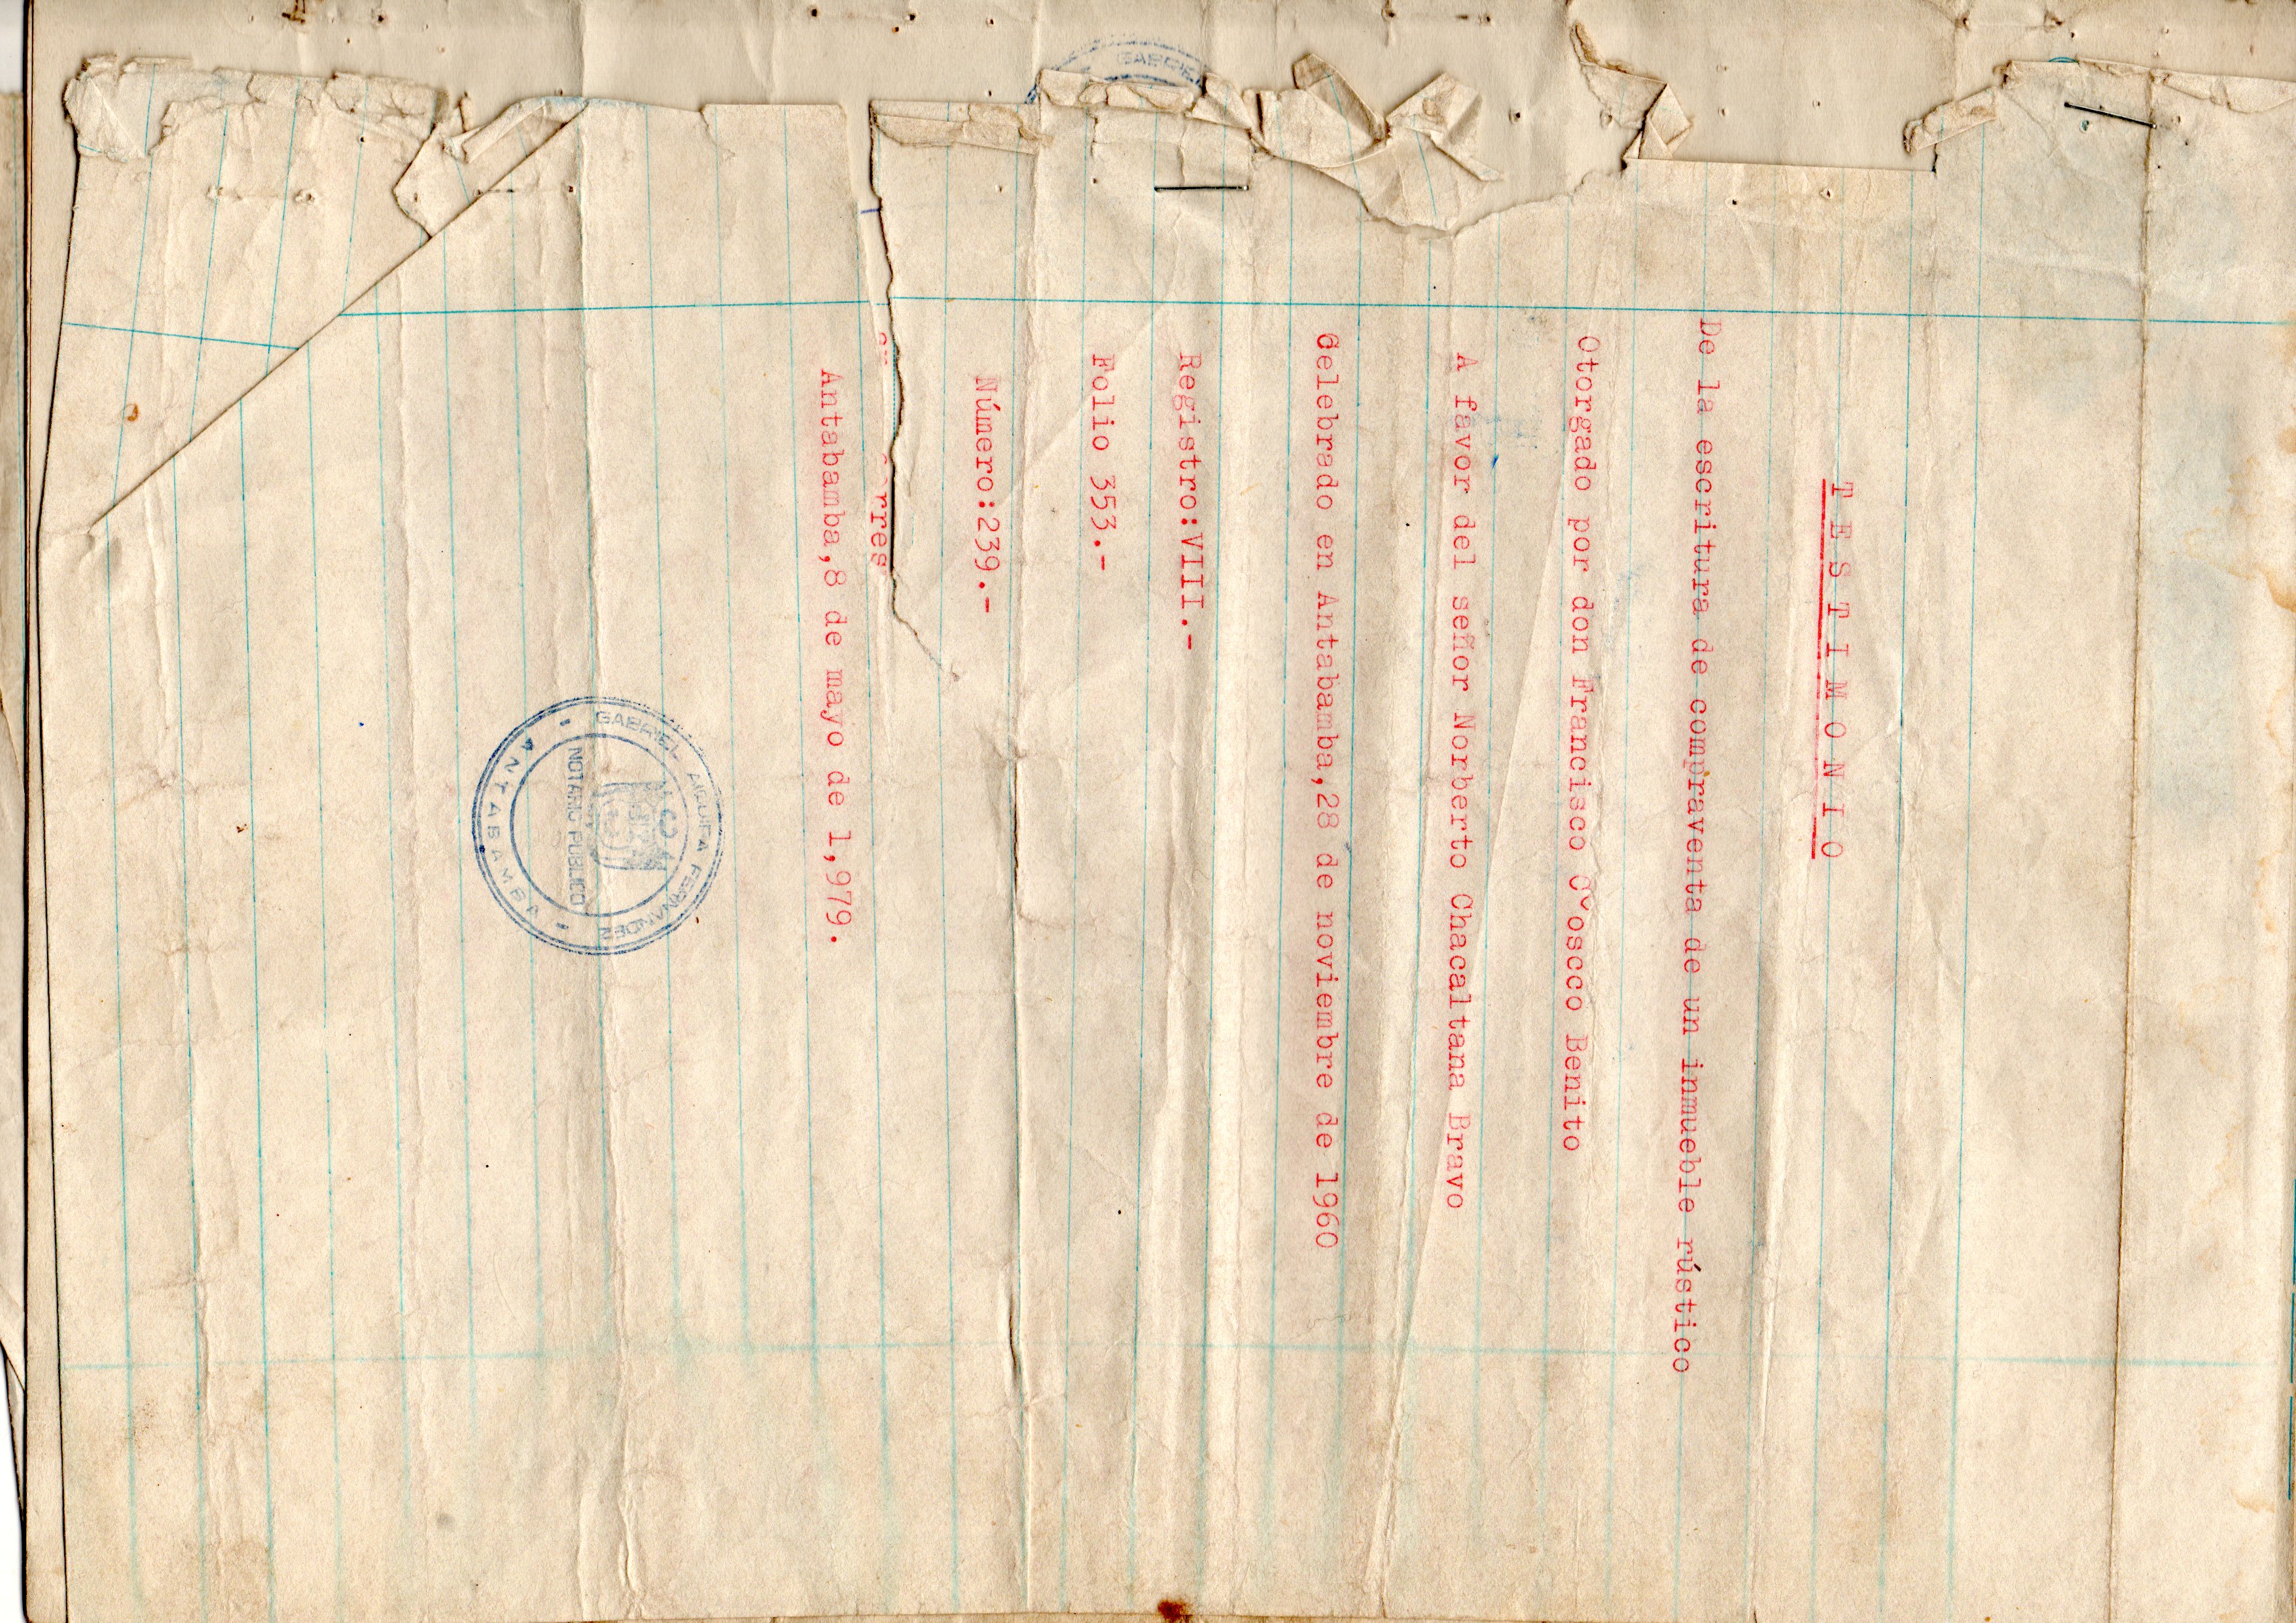 T E S T I M O N I O
De la escritura de compraventa de un inmueble rústico
Otorgado por don Francisco Ccoscco Benito
A favor del señor Norberto Chacaltana Bravo
Celebrado en Antabamba,28 de noviembre de 1960
Registro:VIII.-
Folio 353.-
Número:239.-
Antabamba,8 de mayo de 1,979.
GABRIEL AIQUIPA FERNANDEZ
NOTARIO PUBLICO
- ANTABAMBA -
GABRIEL